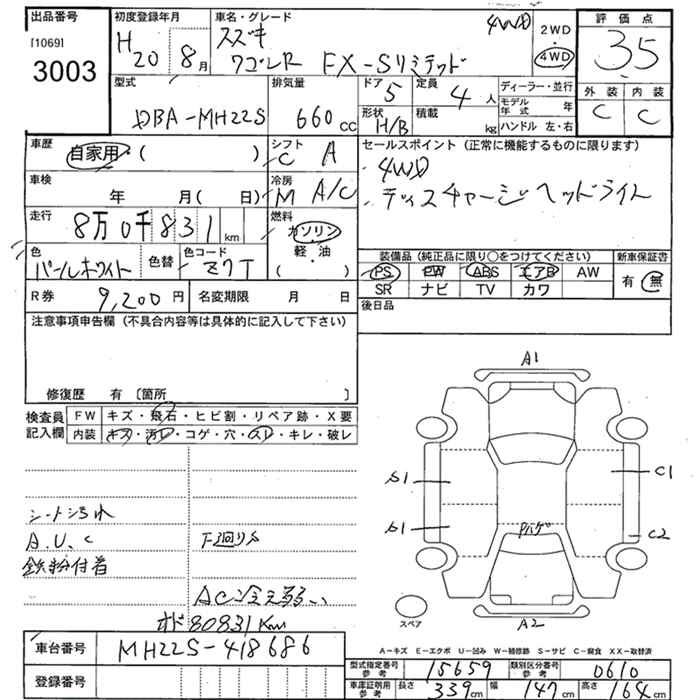 出品番号
[1069]
3003
初度登録年月
H20年 8月
車名・グレード
スズキ
ワゴンR FX-Sリミテッド
4WD
2WD
4WD
評価点
3.5
外装 内装
C C
型式
DBA-MH22S
排気量
660cc
ドア
5
形状
H/B
定員
4人
積載
kg
ディーラー・並行
モデル年式 年
ハンドル 左・右
車歴
自家用 ( )
シフト
C A
セールスポイント (正常に機能するものに限ります)
4WD
ディスチャージヘッドライト
車検
年 月( 日)
冷房
M A/C
走行
8万0千831km
燃料
ガソリン
軽・油
( )
色
パールホワイト
色替
色コード
Z7T
装備品(純正品に限り○をつけてください)
PS PW ABS エアB AW
SR ナビ TV カワ
新車保証書
有・無
R券
9,200円
名変期限 月 日
後日品
注意事項申告欄 (不具合内容等は具体的に記入して下さい)
修復歴 有 〔箇所 〕
検査員記入欄
FW キズ・飛石・ヒビ割・リペア跡・X要
内装 キズ・汚レ・コゲ・穴・スレ・キレ・破レ
シート汚れ
A.U.C
鉄粉付着
下廻りS
AC冷え弱い
オド80831Km
A1
S1
S1
C1
C2
Rハゲ
A2
スペア
A-キズ E-エクボ U-凹み W-補修跡 S-サビ C-腐食 XX-取替済
車台番号
MH22S-418686
登録番号
型式指定番号 参考
15659
類別区分番号 参考
0610
車庫証明用 参考
長さ 339cm 幅 147cm 高さ 164cm